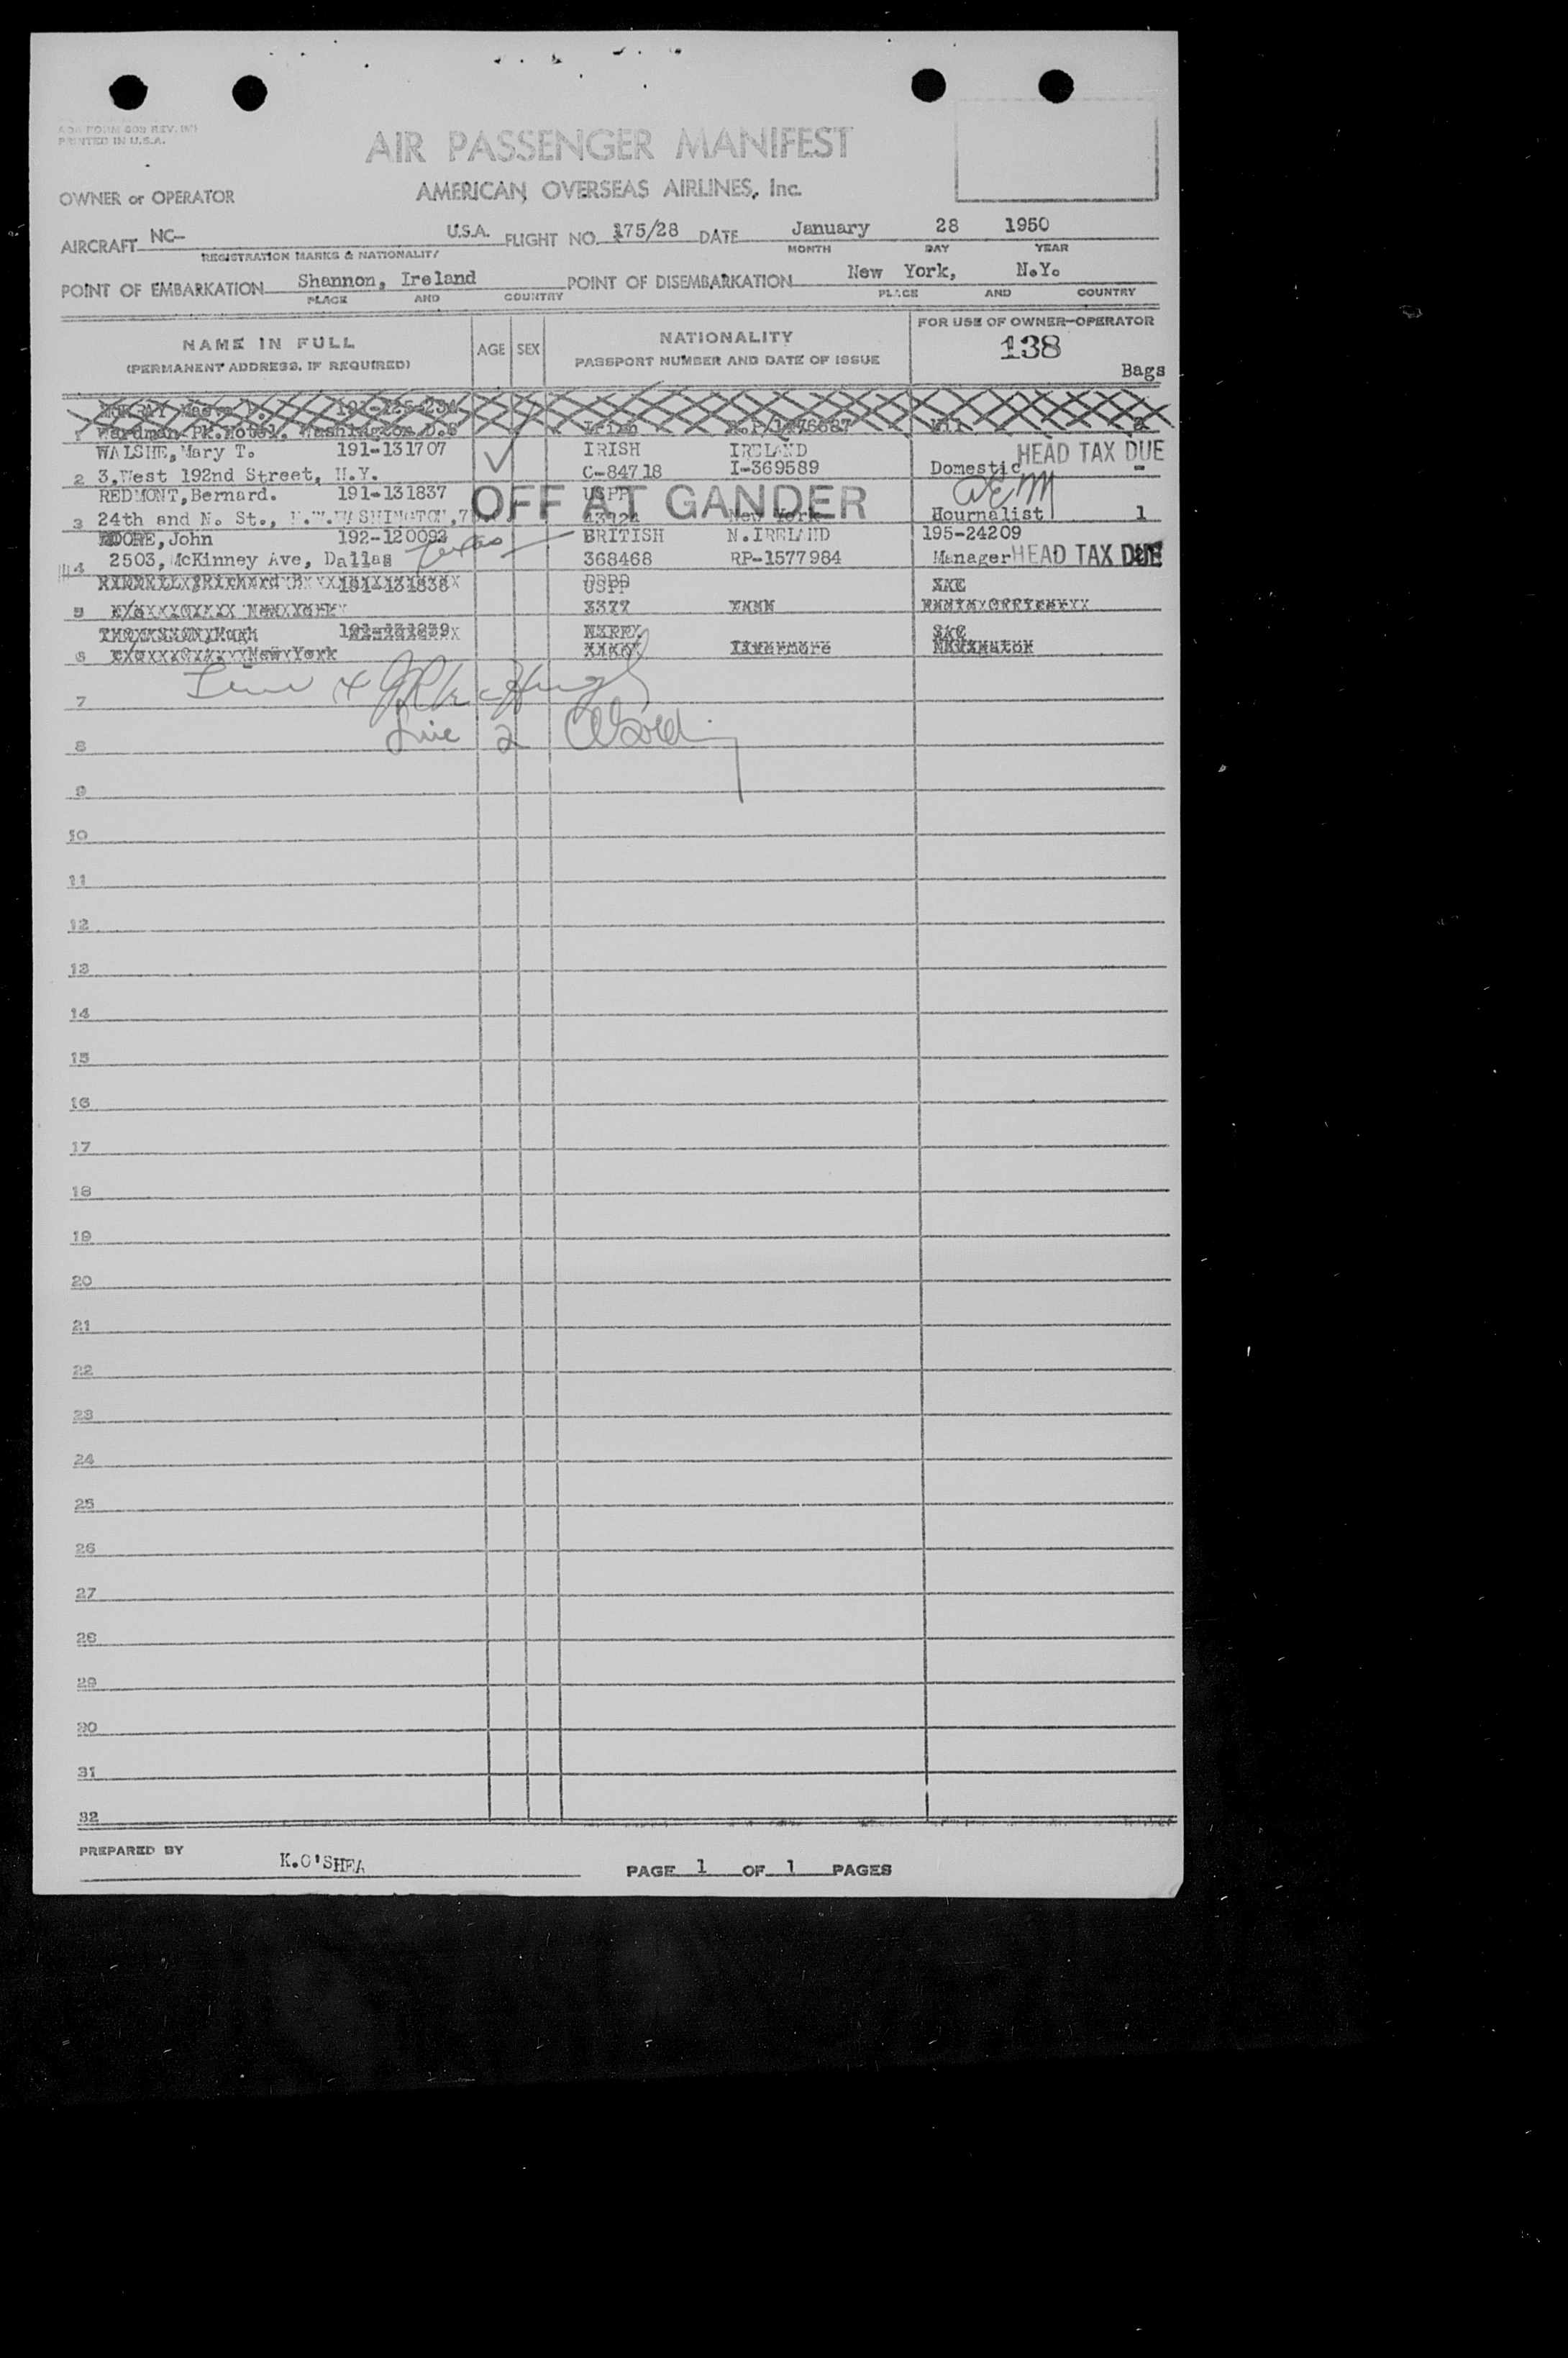 AOA FORM 608 REV.
PRINTED IN U.S.A.
AIR PASSENGER MANIFEST
OWNER or OPERATOR AMERICAN OVERSEAS AIRLINES, Inc.
AIRCRAFT NC- U.S.A. FLIGHT NO. 175/28 DATE January 28 1950
REGISTRATION MARKS & NATIONALITY MONTH DAY YEAR
POINT OF EMBARKATION Shannon, Ireland POINT OF DISEMBARKATION New York, N.Y.
PLACE AND COUNTRY PLACE AND COUNTRY
NAME IN FULL
(PERMANENT ADDRESS, IF REQUIRED)
AGE SEX
NATIONALITY
PASSPORT NUMBER AND DATE OF ISSUE
FOR USE OF OWNER-OPERATOR
138
Bags
1 Wardman Pk. Hotel, Washington D.C Irish
WALSHE, Mary T. 191-131707 IRISH IRELAND HEAD TAX DUE
2 3, West 192nd Street, N.Y. C-84718 I-369589 Domestic -
REDMONT, Bernard. 191-131837 USPP
OFF AT GANDER
3 24th and N. St., N.W. WASHINGTON, 43924 New York Hournalist 1
MOORE, John 192-120093 BRITISH N. IRELAND 195-24209
4 2503, McKinney Ave, Dallas Texas 368468 RP-1577984 Manager HEAD TAX DUE
191-131838 USPP
5 3377
Hugh 191-131839
6 New York
7
Line 2
8
9
10
11
12
13
14
15
16
17
18
19
20
21
22
23
24
25
26
27
28
29
30
31
32
PREPARED BY K. O'SHEA PAGE 1 OF 1 PAGES